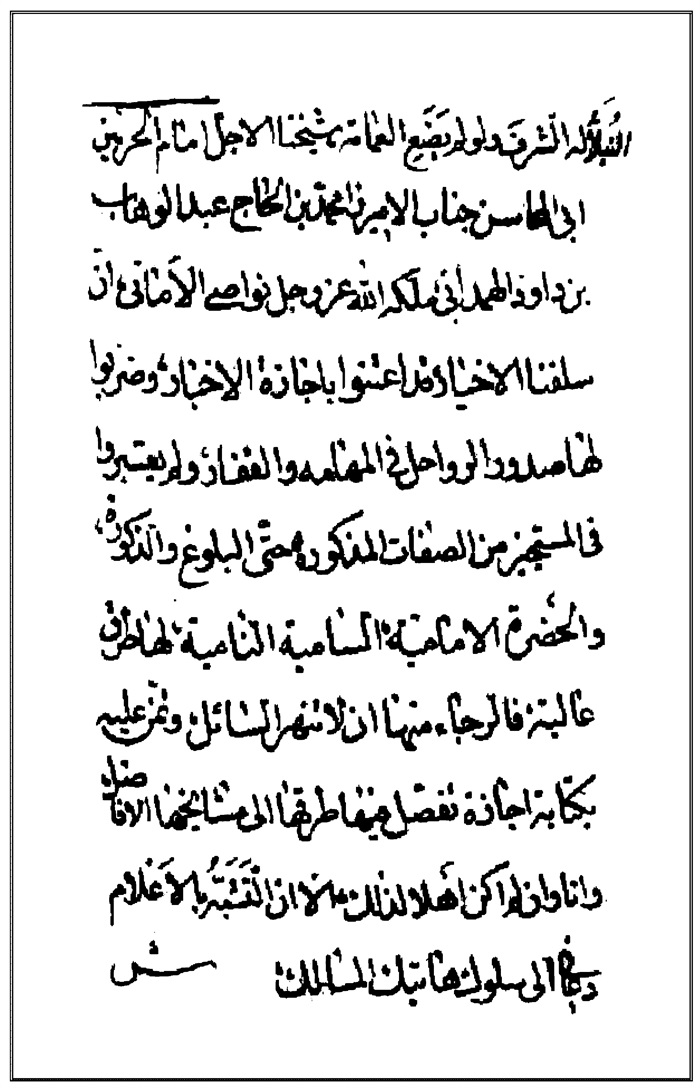 النبالة له الشرف ولو لم يضع العمامة شيخنا الاجل امام الحرمين
ابي المحاسن جناب الاميرزا محمد بن الحاج عبد الوهاب
بن داود الهمداني ملكه الله عز وجل نواصي الأماني ان
سلفنا الاخيار قد اعتنوا باجازة الاخبار وضربوا
لها صدور الرواحل في المهامه والقفار ولم يعتبروا
في المستجيز من الصفات المذكوره حتى البلوغ والذكورة
والحضرة الامامية السامية النامية لها طرق
عالية فالرجاء منها ان لا تنهر السائل وتمن عليه
بكتابة اجازة تفصل فيها طرقها الى مشايخها الافاضل
وانا وان لم اكن اهلا لذلك الا ان التشبه بالأعلام
دعاني الى سلوك هاتيك المسالك